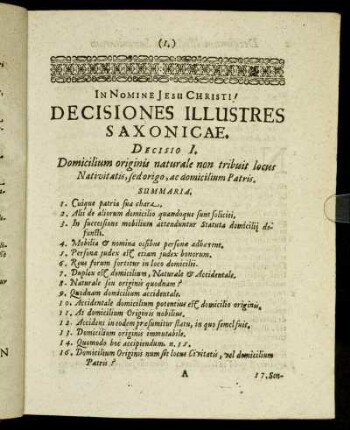 (1.)
IN NOMINE JESU CHRISTI!
DECISIONES ILLUSTRES
SAXONICAE.
DECISIO I.
Domicilium originis naturale non tribuit locus
Nativitatis, sed origo, ac domicilium Patris.
SUMMARIA.
1. Cuique patria sua chara.
2. Alii de aliorum domicilio quandoque sunt soliciti.
3. In successione mobilium attenduntur Statuta domicilij de-
functi.
4. Mobilia & nomina ossibus personæ adhærent.
5. Persona judex est etiam judex bonorum.
6. Reus forum sortitur in loco domicilii.
7. Duplex est domicilium, Naturale & Accidentale.
8. Naturale seu originis quodnam?
9. Quodnam domicilium accidentale.
10. Accidentale domicilium potentius est domicilio originis.
11. At domicilium Originis nobilius.
12. Accidens in eodem præsumitur statu, in quo semel fuit.
13. Domicilium originis immutabile.
14. Quomodo hoc accipiendum. n. 15.
16. Domicilium Originis num sit locus Civitatis, vel domicilium
Patris?
A 17. Sen-